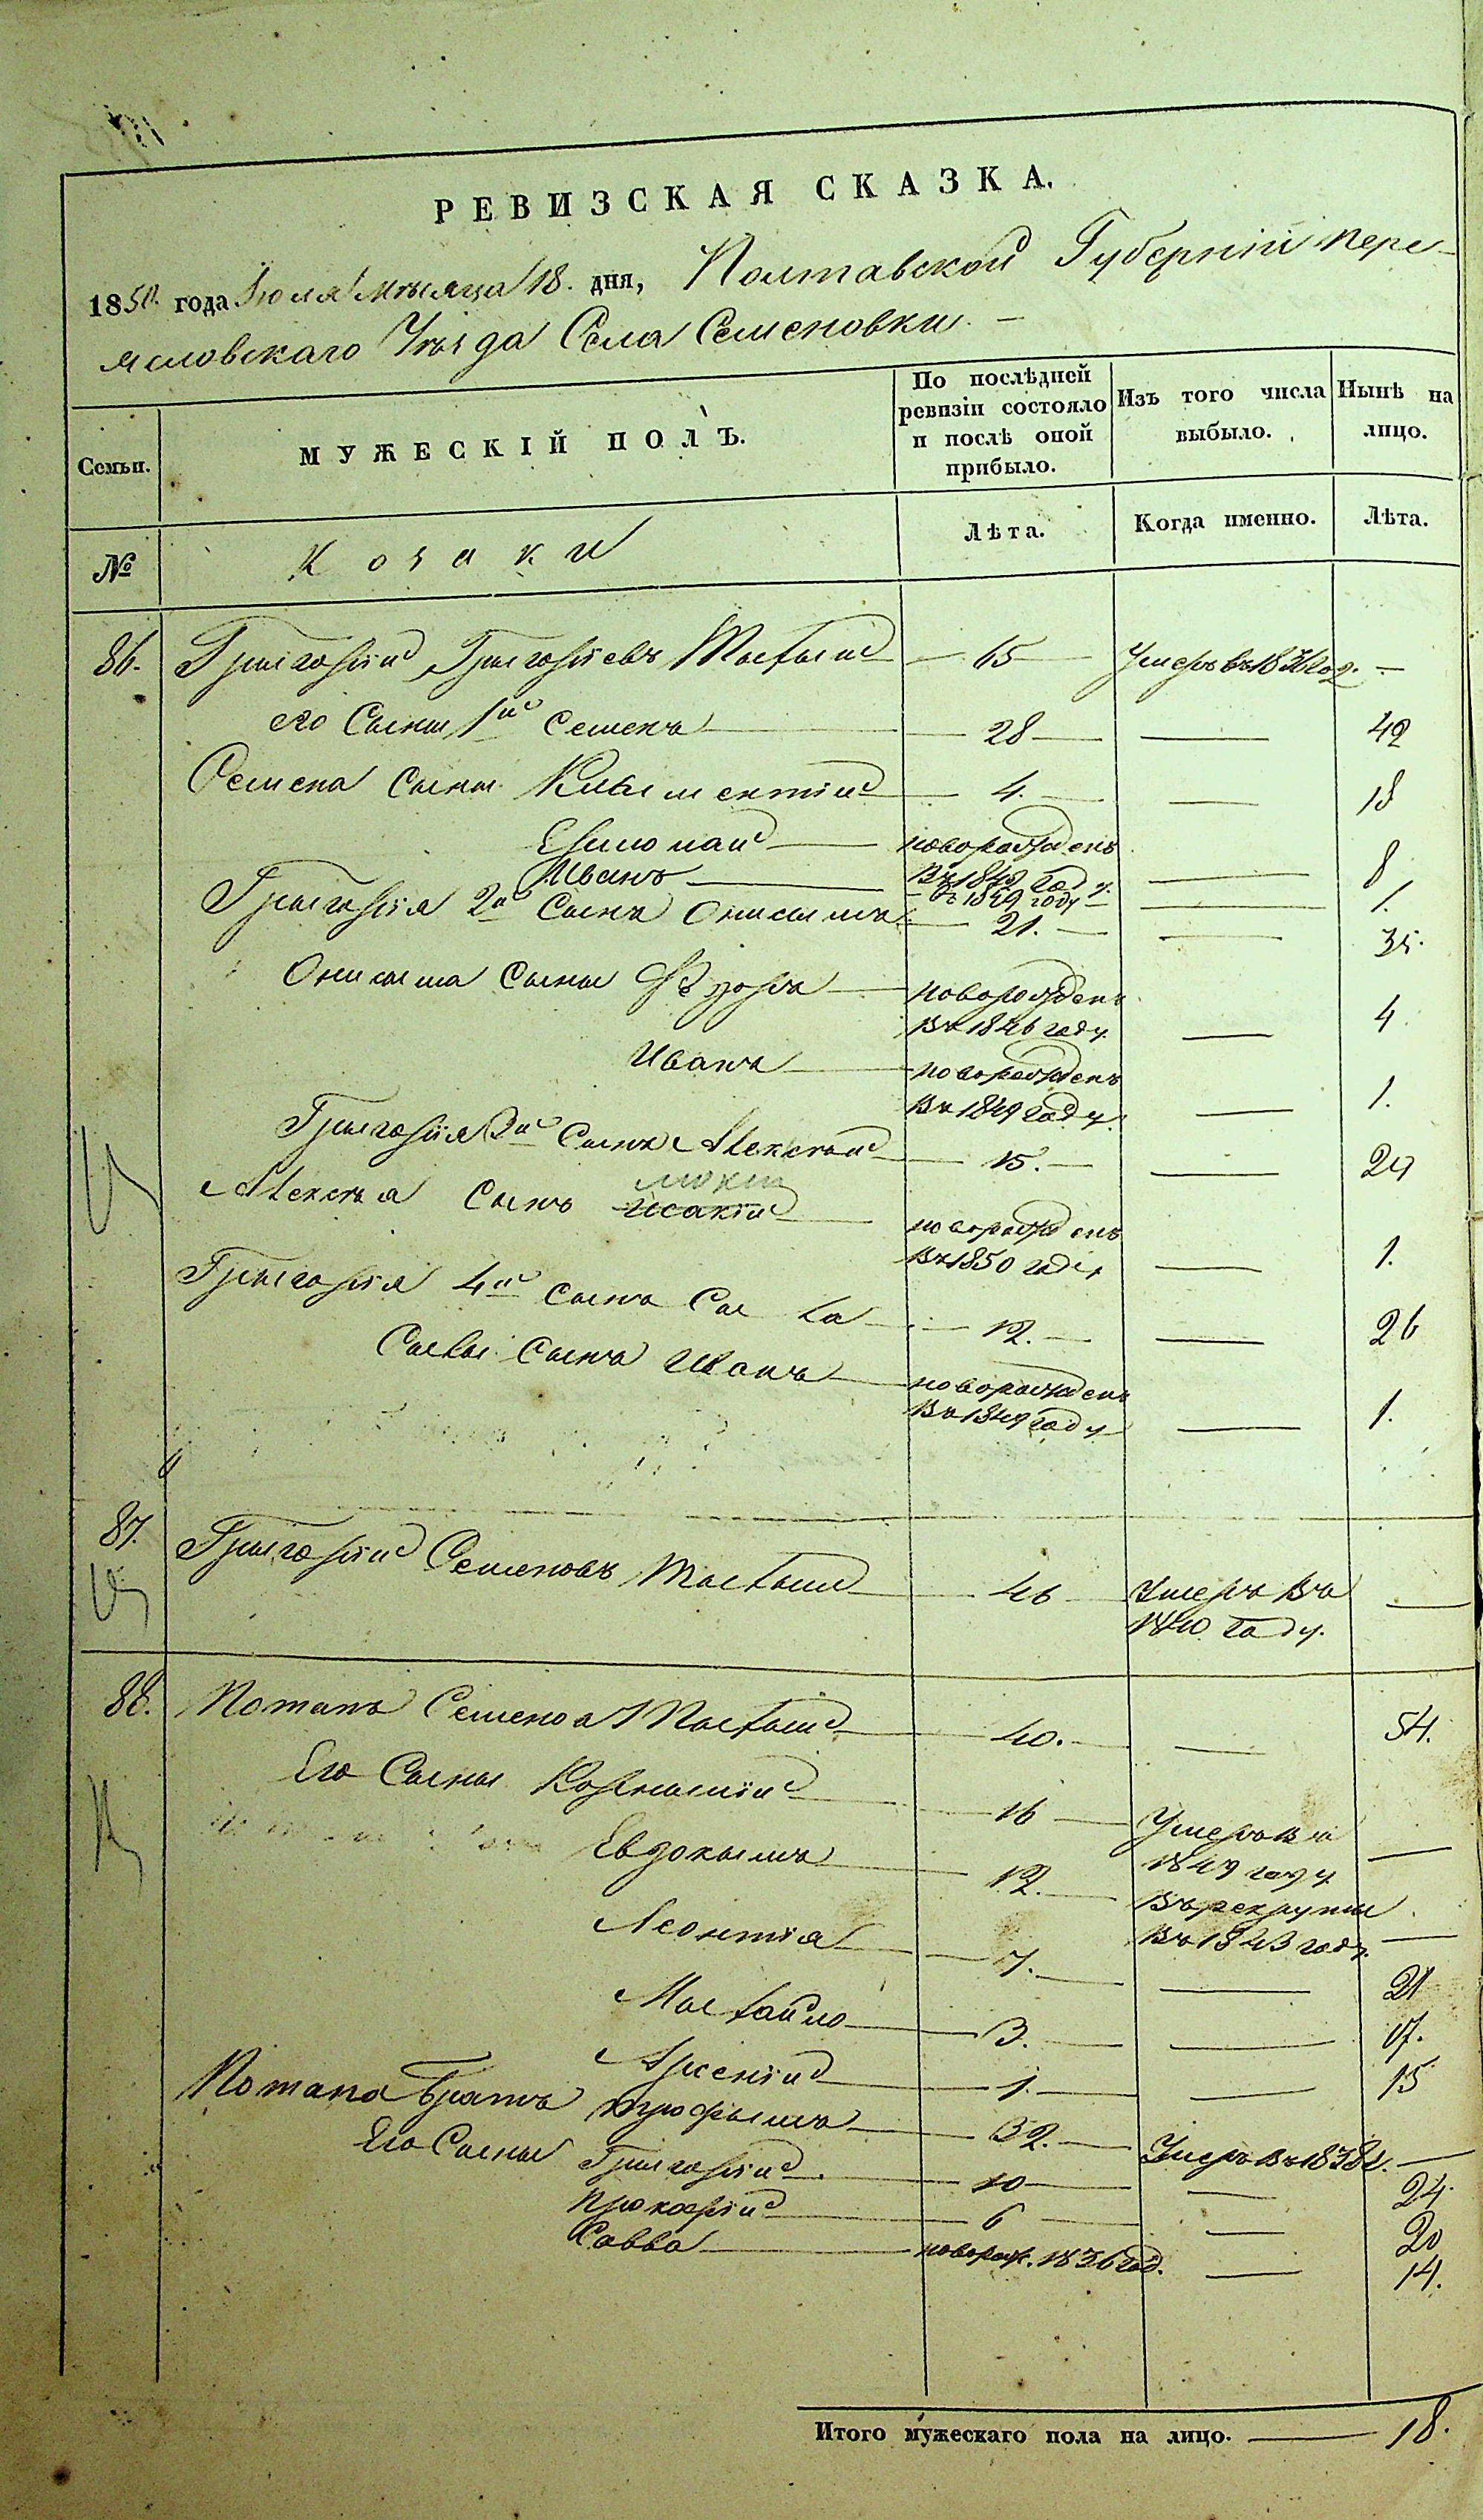 РЕВИЗСКАЯ СКАЗКА.
1850 года Іюля Мѣсяца 18. дня, Полтавской Губерніи Пере-
яславскаго Уѣзда Села Семеновки. —
Семьи.
МУЖЕСКІЙ ПОЛЪ.
По послѣдней ревизіи состояло и послѣ оной прибыло.
Изъ того числа выбыло.
Нынѣ на лицо.
№
Козаки
Лѣта.
Когда именно.
Лѣта.
86. Григорій Григоріевъ — 65 — Умеръ въ 1836 год. —
его Сыны 1й Семенъ — 28 — — 42
Семена Сыны Климентій — 4. — — 18
новорожденъ
Въ 1842 году — 8
Иванъ — въ 1849 году — 1.
Григорія 2й Сынъ Онисимъ — 21. — — 35.
Онисима Сыны Ѳедоръ — новорожденъ
Въ 1846 году — 4
Иванъ — новорожденъ
Въ 1849 году. — 1.
Григорія 3й Сынъ Алексѣй — 15. — — 29
Мокій
Алексѣя Сынъ Исакій — новорожденъ
Въ 1850 году — 1.
Григорія 4й Сынъ Сава — 12. — — 26
Савы Сынъ Иванъ — новорожденъ
Въ 1849 году — 1.
87. Григорій Семеновъ — 46 — Умеръ въ —
1840 году.
88. Потапъ Семеновъ — 40. — — 54.
Его Сыны — 16 — Умеръ въ
1849 году —
Евдокимъ — 12. — Въ рекруты
Въ 1843 году. —
Леонтія — 7. — — 21
Михайло — 3. — — 17.
Арсеній — 1. — — 15
Потапа Братъ Трофимъ — 32. — Умеръ въ 1838 г. —
Его Сыны Григорій — 10 — — 24.
Прокофій — 6 — — 20
Савва — новорож. 1836 год. — 14.
Итого мужескаго пола на лицо. — 18.